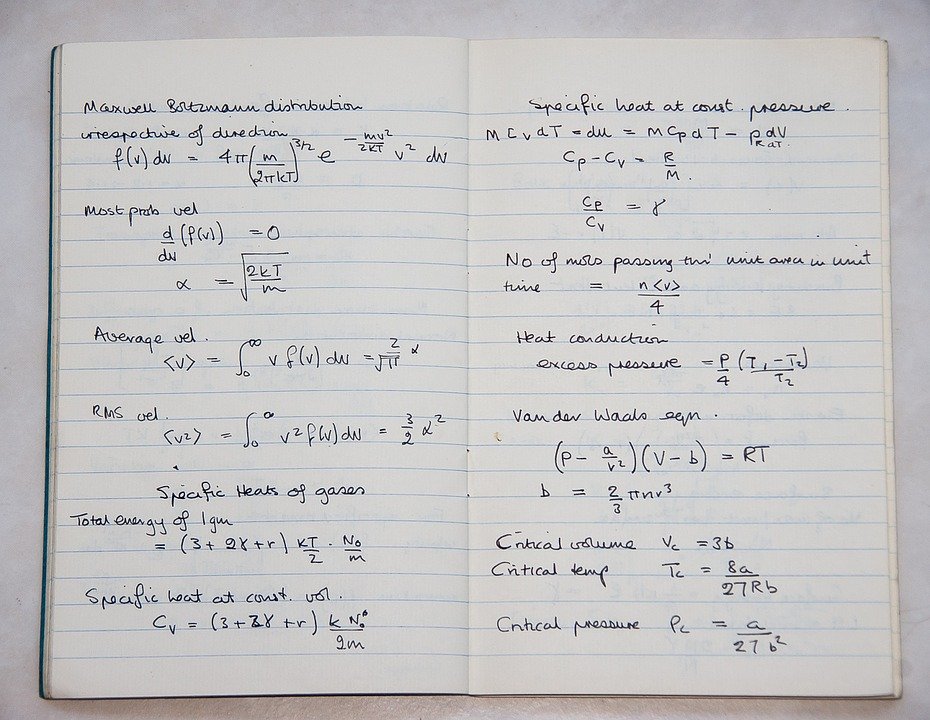 Maxwell Boltzmann distribution
irrespective of direction
f(v) dv = 4π(m/2πkT)^3/2 e^−mv²/2kT v² dv
Most prob vel
d/dv (f(v)) = 0
α = √(2kT/m)
Average vel.
<v> = ∫₀^∞ v f(v) dv = 2/√π α
RMS vel.
<v²> = ∫₀^∞ v² f(v) dv = 3/2 α²
Specific Heats of gases
Total energy of 1gm
= (3 + 2γ + r) kT/2 · N₀/m
Specific heat at const. vol.
Cv = (3 + 2γ + r) k N₀/2m
Specific heat at const. pressure.
M Cv dT = du = M Cp dT − p dV
R dT.
Cp − Cv = R/M.
Cp/Cv = γ
No of mols passing thro' unit area in unit
time = n<v>/4
Heat conduction
excess pressure = P/4 (T₁ − T₂/T₂)
Van der Waals eqn.
(P − a/v²)(V − b) = RT
b = 2/3 πnr³
Critical volume Vc = 3b
Critical temp Tc = 8a/27Rb
Critical pressure Pc = a/27b²